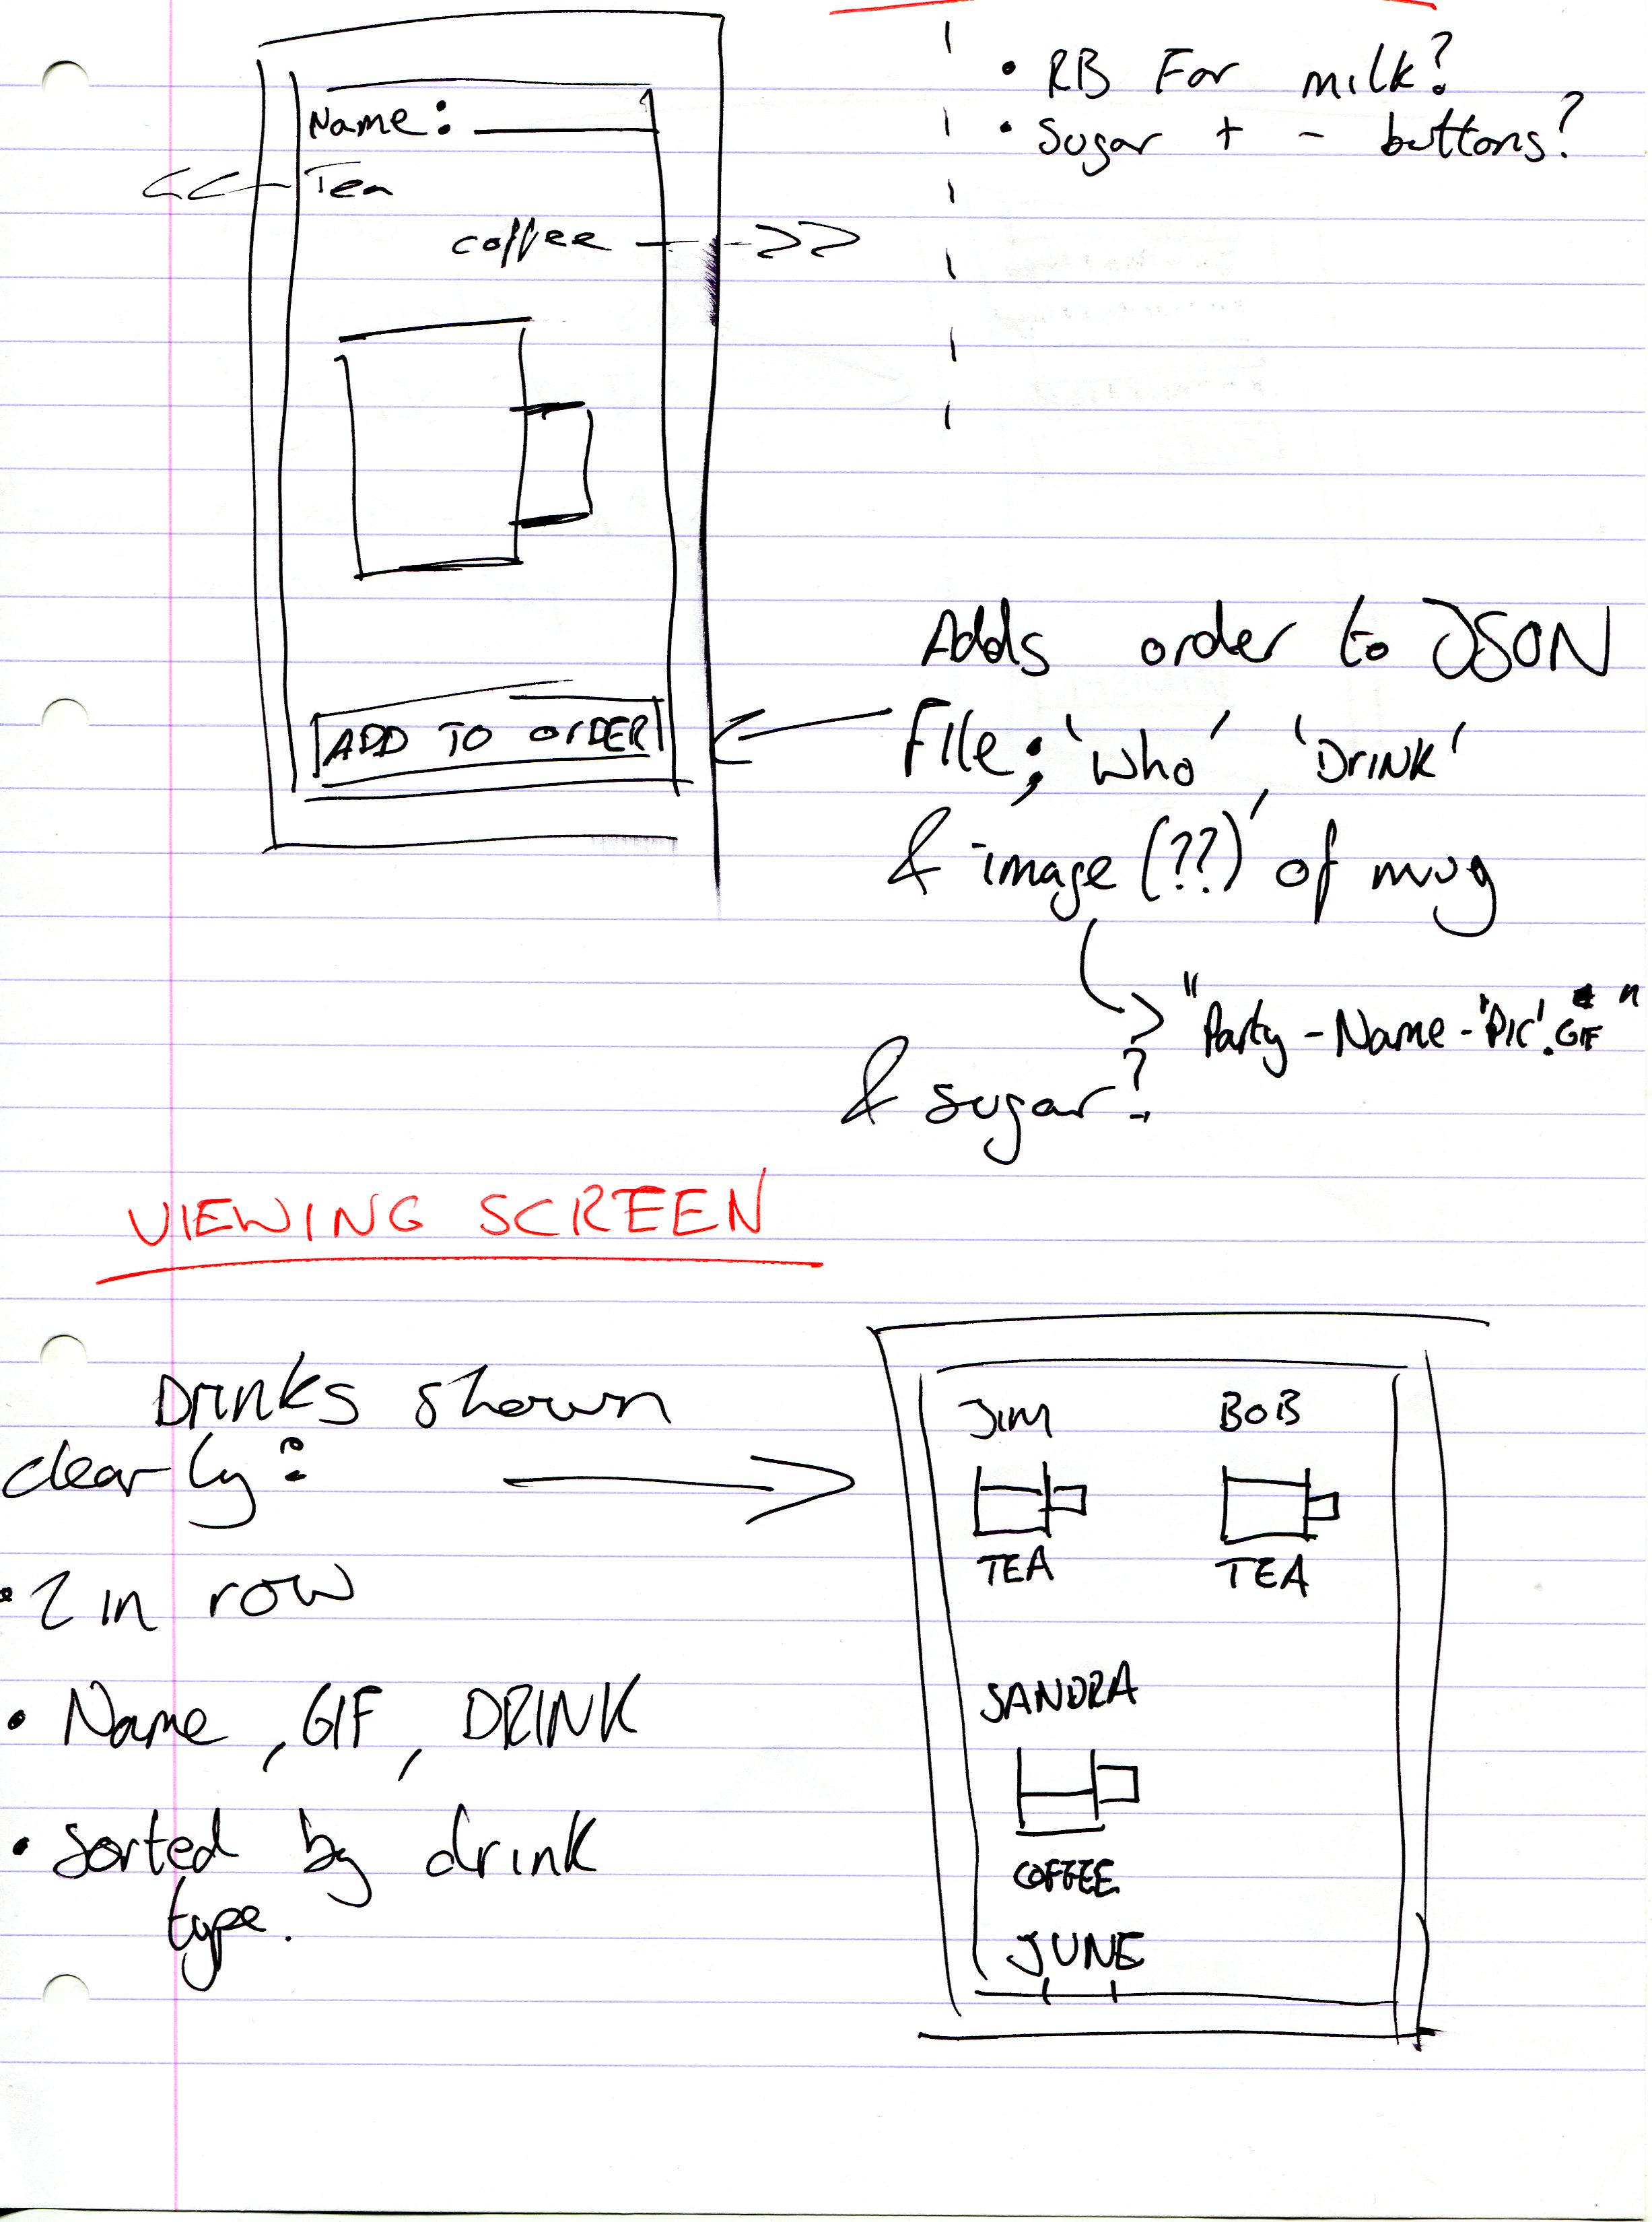 Name:
<<- Tea
coffee ->>
• RB For milk?
• Sugar + - buttons?
ADD TO OrDER
Adds order to JSON
File; 'Who', 'DrINK'
& image (??) of mug
"Party-Name-'Pic'.GIF"
& sugar?
VIEWING SCREEN
Drinks shown
clearly:
• 2 in row
• Name, GIF, DRINK
• Sorted by drink
type.
JIM BOB
TEA TEA
SANDRA
COFFEE
JUNE